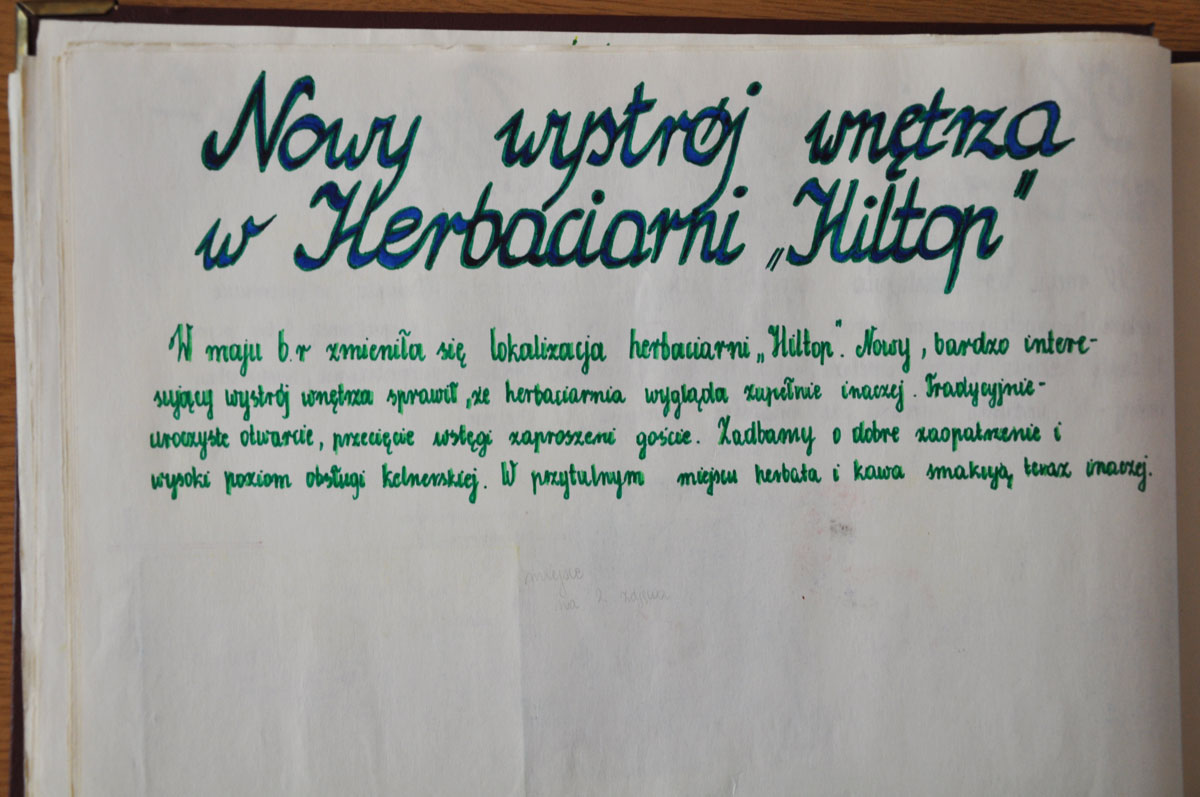 Nowy wystrój wnętrza
w Herbaciarni „Hiltop"
W maju b.r zmieniła się lokalizacja herbaciarni „Hiltop". Nowy, bardzo intere-
sujący wystrój wnętrza sprawił, że herbaciarnia wygląda zupełnie inaczej. Tradycyjnie -
uroczyste otwarcie, przecięcie wstęgi zaproszeni goście. Zadbamy o dobre zaopatrzenie i
wysoki poziom obsługi kelnerskiej. W przytulnym miejscu herbata i kawa smakują teraz inaczej.
miejsce
na 2 zdjęcia